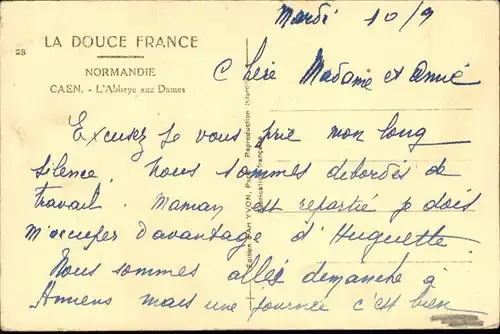 Mardi 10/9
28
LA DOUCE FRANCE
NORMANDIE
CAEN. - L'Abbaye aux Dames
Chère Madame et Amié
Excusez je vous prie mon long
silence. Nous sommes debordés de
travail. Maman est repartie je dois
m'occuper d'avantage d'Huguette.
Nous sommes allés dimanche à
Amiens mais une journée c'est bien
Edition d'Art YVON, Paris. Reproduction interdite
Fabrication française